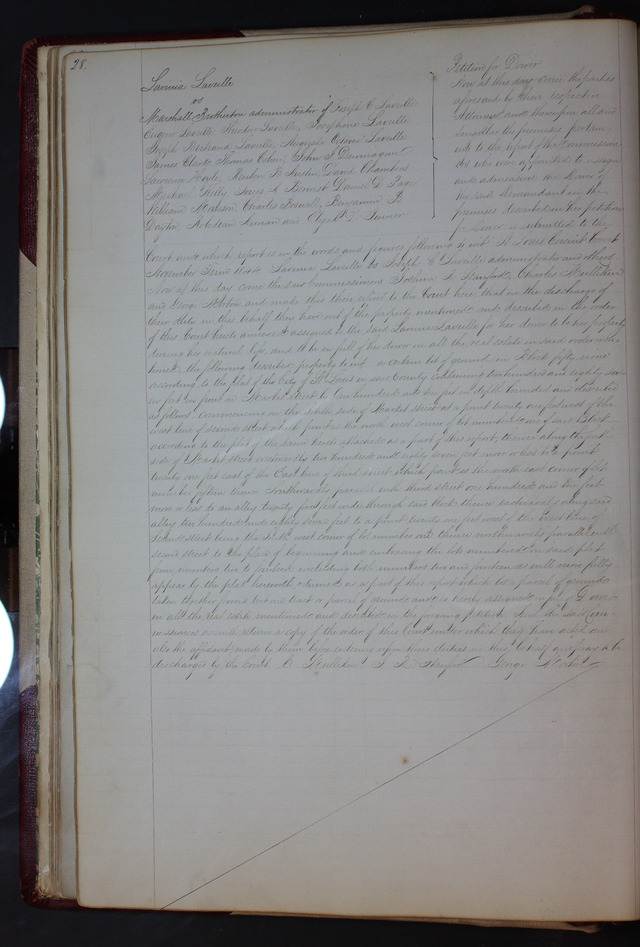 28.
Lavinia Laveille
vs
Marshall Brotherton administrator of Joseph C Laveille
Eugene Laveille Theodore Laveille, Josephine Laveille
Joseph Bertrand Laveille, Edward Laveille
James Clark Thomas Cohen, John S Dunnagan
Hoyle, Austin, David Chambers
Michael Kelly, Louis A Benoist Daniel D Page
William Charles Powell, Benjamin B
Dayton, Adelean Inman and Elijah Turner
Petition for Dower
Now at this day come the parties
aforesaid by their respective
Attorneys and thereupon all and
singular the premises pertain-
ing to the report of the Commissioners
who were appointed to assign
and admeasure the Dower of
the said Demandant in the
premises described in the petition
for Dower is submitted to the
Court and which report is in the words and figures following to wit St Louis Circuit Court
November Term Lavinia Laveille vs Joseph C Laveille administrator and others
Now at this day come the said Commissioners Joshua Charles
and George Morton and make this their report to the Court here that in the discharge of
their duty in this behalf they have out of the property mentioned and described in the order
of this Court hereto annexed assigned to the said Lavinia Laveille for her dower to be her property
during her natural life and to be in full of her dower in all the real estate in said order
the following described property to wit a certain lot of ground in Block fifty nine
according to the plat of the City of St Louis in said County containing two hundred and eighty seven
feet in front on Market street by one hundred and ten feet in depth bounded and described
as follows Commencing on the south side of Market street at a point twenty one feet west of the
west line of second street which point is the north west corner of lot number one of said Block
according to the plat of the same hereto attached as a part of this report, thence along the south
side of Market street westwardly two hundred and eighty seven feet more or less to a point
twenty one feet east of the East line of third street which point is the north east corner of lot
number fifteen thence Southwardly parallel with third street one hundred and ten feet
more or less to an alley twenty feet wide through said block thence eastwardly along said
alley two hundred and eighty seven feet to a point twenty one feet west of the west line of
second street being the South west corner of lot number one thence northwardly parallel with
second street to the place of beginning and embracing the lots numbered on said plat
from numbers two to fourteen including both numbers two and fourteen as will more fully
appear by the plat herewith returned as a part of this report which lots or parcel of ground
taken together forms but one tract or parcel of ground and is hereby assigned in full of Dower
in all the real estate mentioned and described in the foregoing petition And the said Com-
missioners herewith return a copy of the order of this Court under which they have acted and
also the affidavit made by them before entering upon their duties in this behalf and pray to be
discharged by the Court C George Morton